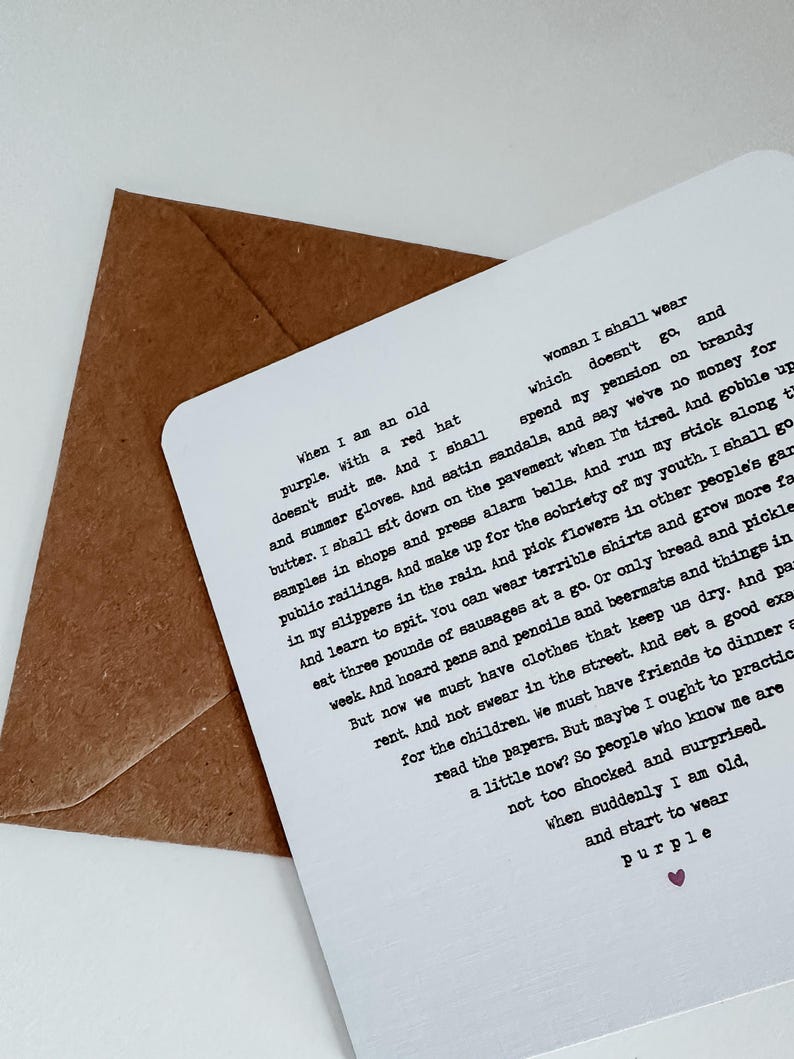 When I am an old woman I shall wear
purple. With a red hat which doesn't go, and
doesn't suit me. And I shall spend my pension on brandy
and summer gloves. And satin sandals, and say we've no money for
butter. I shall sit down on the pavement when I'm tired. And gobble up
samples in shops and press alarm bells. And run my stick along
public railings. And make up for the sobriety of my youth. I shall go
in my slippers in the rain. And pick flowers in other people's
And learn to spit. You can wear terrible shirts and grow more
eat three pounds of sausages at a go. Or only bread and
week. And hoard pens and pencils and beermats and things in
But now we must have clothes that keep us dry. And
rent. And not swear in the street. And set a good
for the children. We must have friends to dinner
read the papers. But maybe I ought to
a little now? So people who know me are
not too shocked and surprised.
When suddenly I am old,
and start to wear
purple